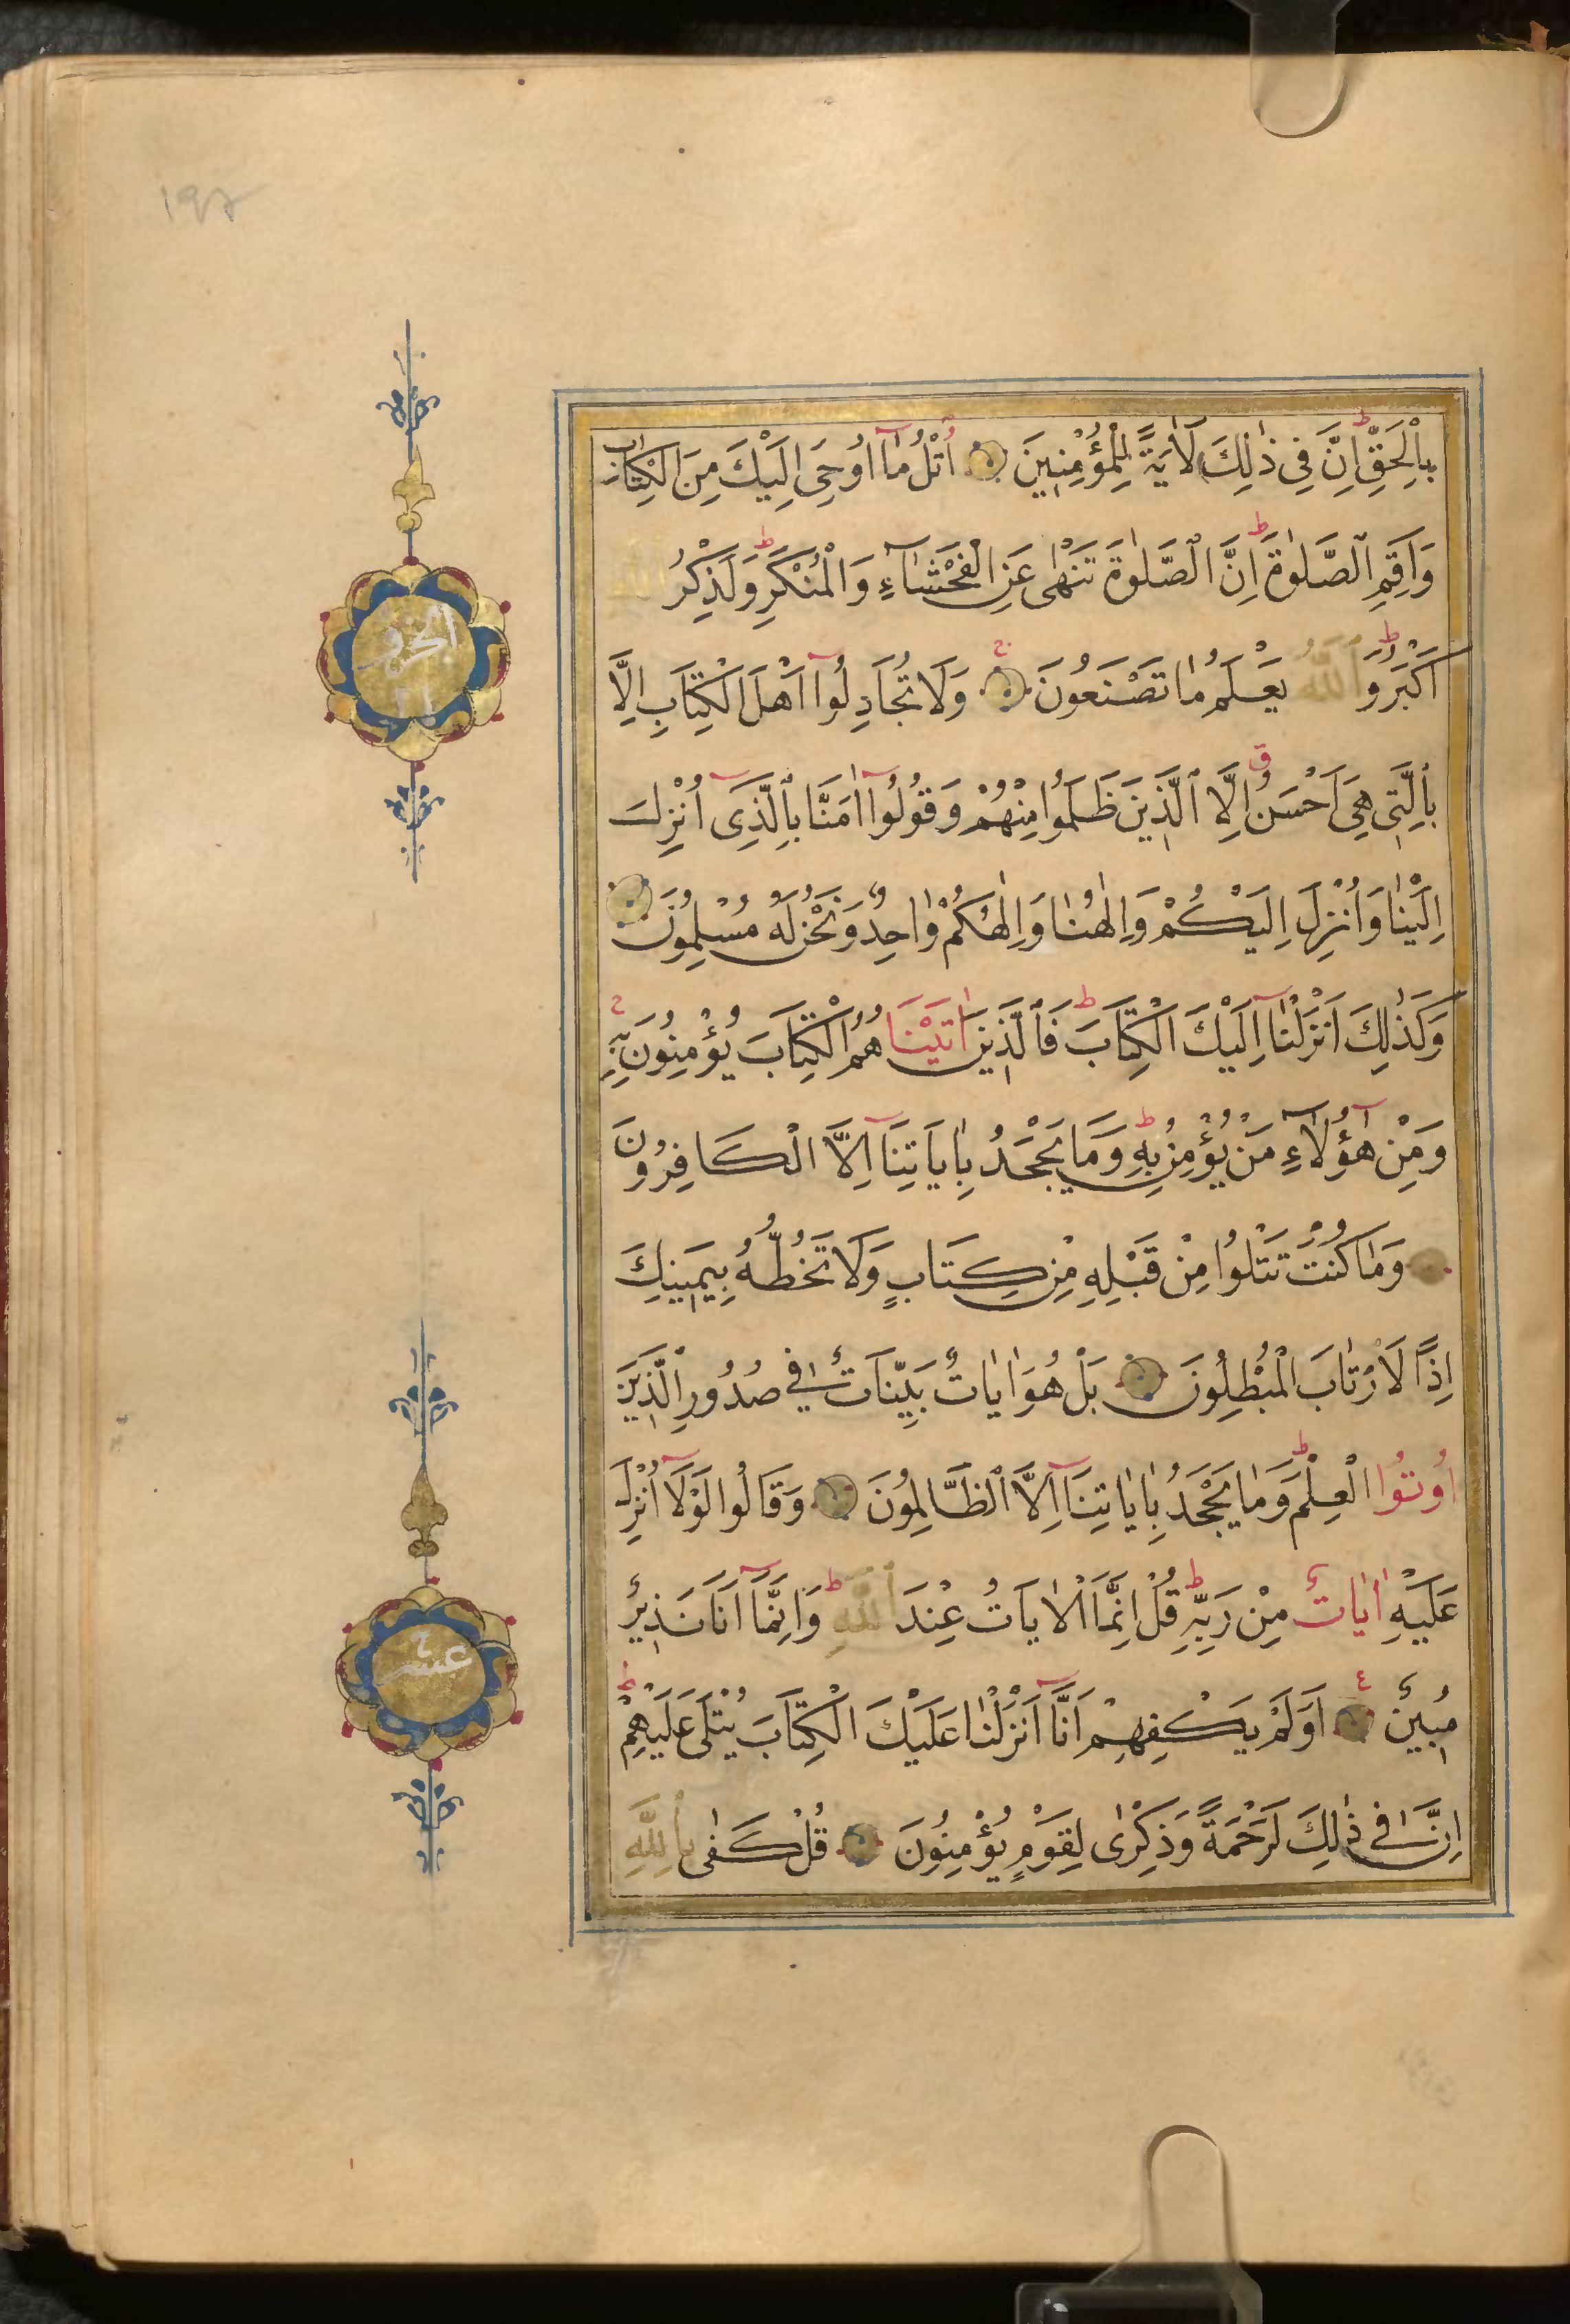 بِالْحَقِّ اِنَّ فِى ذٰلِكَ لَاٰيَةً لِلْمُؤْمِنِينَ اُتْلُ مَٓا اُوحِىَ اِلَيْكَ مِنَ الْكِتَابِ
وَاَقِمِ الصَّلٰوةَ اِنَّ الصَّلٰوةَ تَنْهٰى عَنِ الْفَحْشَٓاءِ وَالْمُنْكَرِ وَلَذِكْرُ اللّٰهِ
اَكْبَرُ وَاللّٰهُ يَعْلَمُ مَا تَصْنَعُونَ وَلَا تُجَادِلُٓوا اَهْلَ الْكِتَابِ اِلَّا
بِالَّتِى هِىَ اَحْسَنُ اِلَّا الَّذِينَ ظَلَمُوا مِنْهُمْ وَقُولُٓوا اٰمَنَّا بِالَّذِٓى اُنْزِلَ
اِلَيْنَا وَاُنْزِلَ اِلَيْكُمْ وَاِلٰهُنَا وَاِلٰهُكُمْ وَاحِدٌ وَنَحْنُ لَهُ مُسْلِمُونَ
وَكَذٰلِكَ اَنْزَلْنَٓا اِلَيْكَ الْكِتَابَ فَالَّذِينَ اٰتَيْنَاهُمُ الْكِتَابَ يُؤْمِنُونَ بِهِ
وَمِنْ هٰٓؤُلَٓاءِ مَنْ يُؤْمِنُ بِهِ وَمَا يَجْحَدُ بِاٰيَاتِنَٓا اِلَّا الْكَافِرُونَ
وَمَا كُنْتَ تَتْلُوا مِنْ قَبْلِهِ مِنْ كِتَابٍ وَلَا تَخُطُّهُ بِيَمِينِكَ
اِذًا لَارْتَابَ الْمُبْطِلُونَ بَلْ هُوَ اٰيَاتٌ بَيِّنَاتٌ فِى صُدُورِ الَّذِينَ
اُوتُوا الْعِلْمَ وَمَا يَجْحَدُ بِاٰيَاتِنَٓا اِلَّا الظَّالِمُونَ وَقَالُوا لَوْلَٓا اُنْزِلَ
عَلَيْهِ اٰيَاتٌ مِنْ رَبِّهِ قُلْ اِنَّمَا الْاٰيَاتُ عِنْدَ اللّٰهِ وَاِنَّمَٓا اَنَا نَذِيرٌ
مُبِينٌ اَوَلَمْ يَكْفِهِمْ اَنَّٓا اَنْزَلْنَا عَلَيْكَ الْكِتَابَ يُتْلٰى عَلَيْهِمْ
اِنَّ فِى ذٰلِكَ لَرَحْمَةً وَذِكْرٰى لِقَوْمٍ يُؤْمِنُونَ قُلْ كَفٰى بِاللّٰهِ
عشر